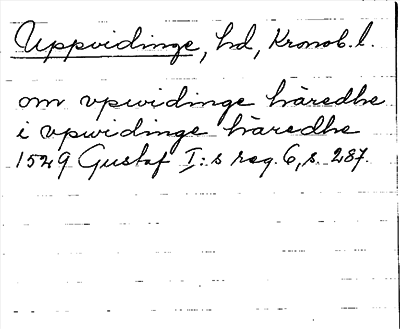 Uppvidinge, hd, Kronob. l.
om vpwidinge häredhe
i vpwidinge häredhe
1529 Gustaf I:s reg. 6, s. 287.